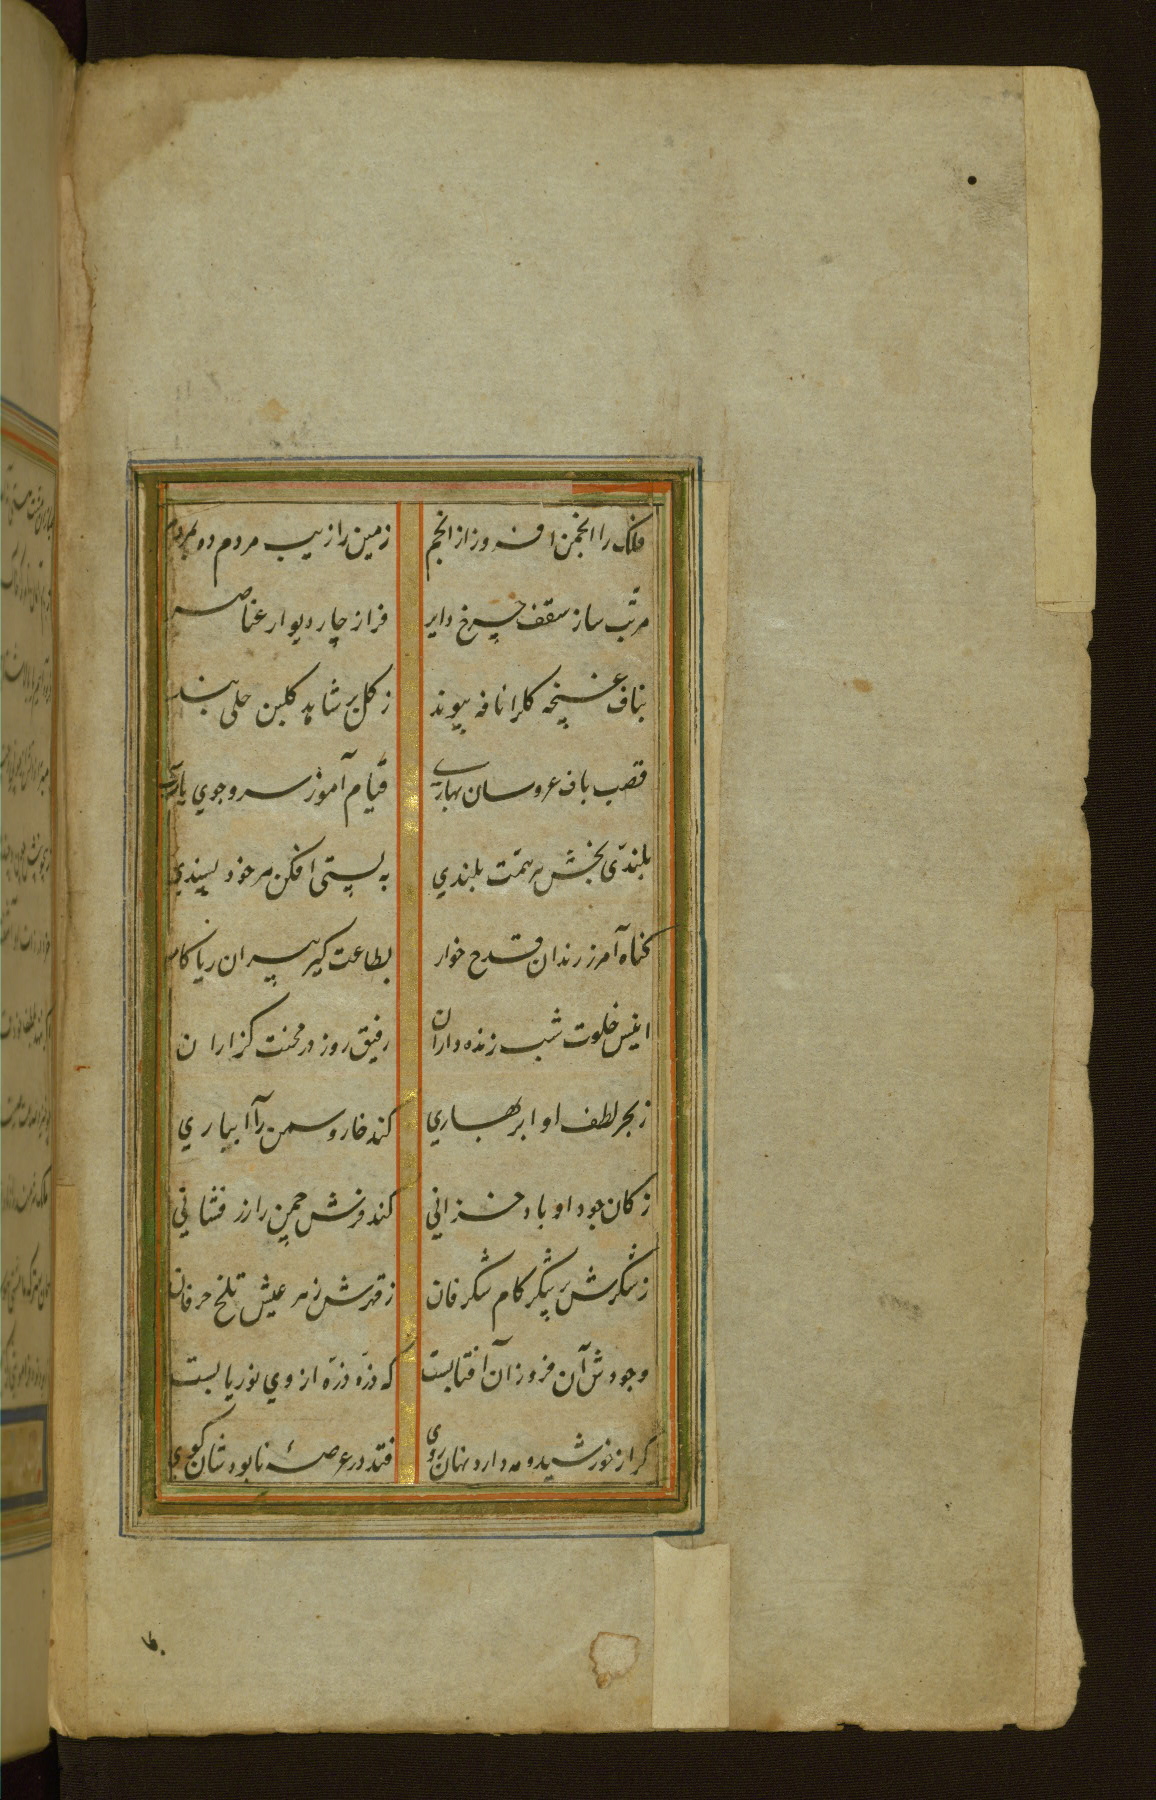 فلک را انجمن افروز از انجم زمین را زیب مردم ده بمردم
مرتب ساز سقف چرخ دایر فراز چار دیوار عناصر
بناف غنچه کل را نافه پیوند ز کل بر شاهد کلبن حلی بند
قصب باف عروسان بهاری قیام آموز سرو جویباری
بلندی بخش هر همت بلندی به پستی افکن هر خود پسندی
کناه آمرز رندان قدح خوار بطاعت کیر پیران ریاکار
انیس خلوت شب زنده داران رفیق روز در محنت کزاران
ز بحر لطف او ابر بهاری کند خار و سمن را آبیاری
ز کان جود او باد خزانی کند فرش چمن را زر فشانی
ز شکرش پر شکر کام شکرفان ز قهرش زهر عیش تلخ حرفان
وجودش آن فروزان آفتابست که ذره ذره از وی نوریابست
کر از خورشید و مه دارد نهان روی فتد در عرصهٔ نابودشان کوی